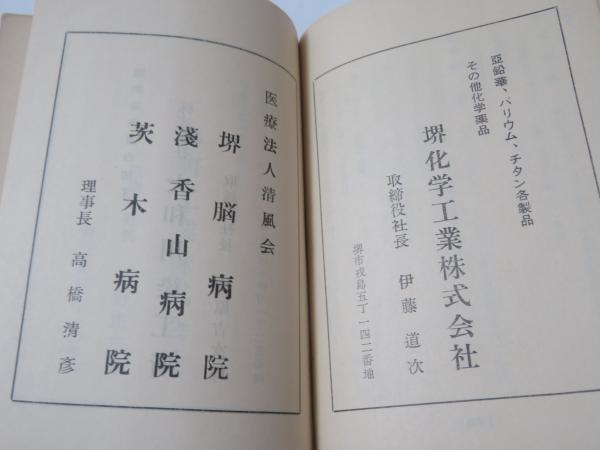 亞鉛華、バリウム、チタン各製品
その他化学薬品
堺化学工業株式会社
取締役社長 伊藤道次
堺市戎島五丁一四二番地
医療法人清風会
堺脳病院
淺香山病院
茨木病院
理事長 高橋清彦